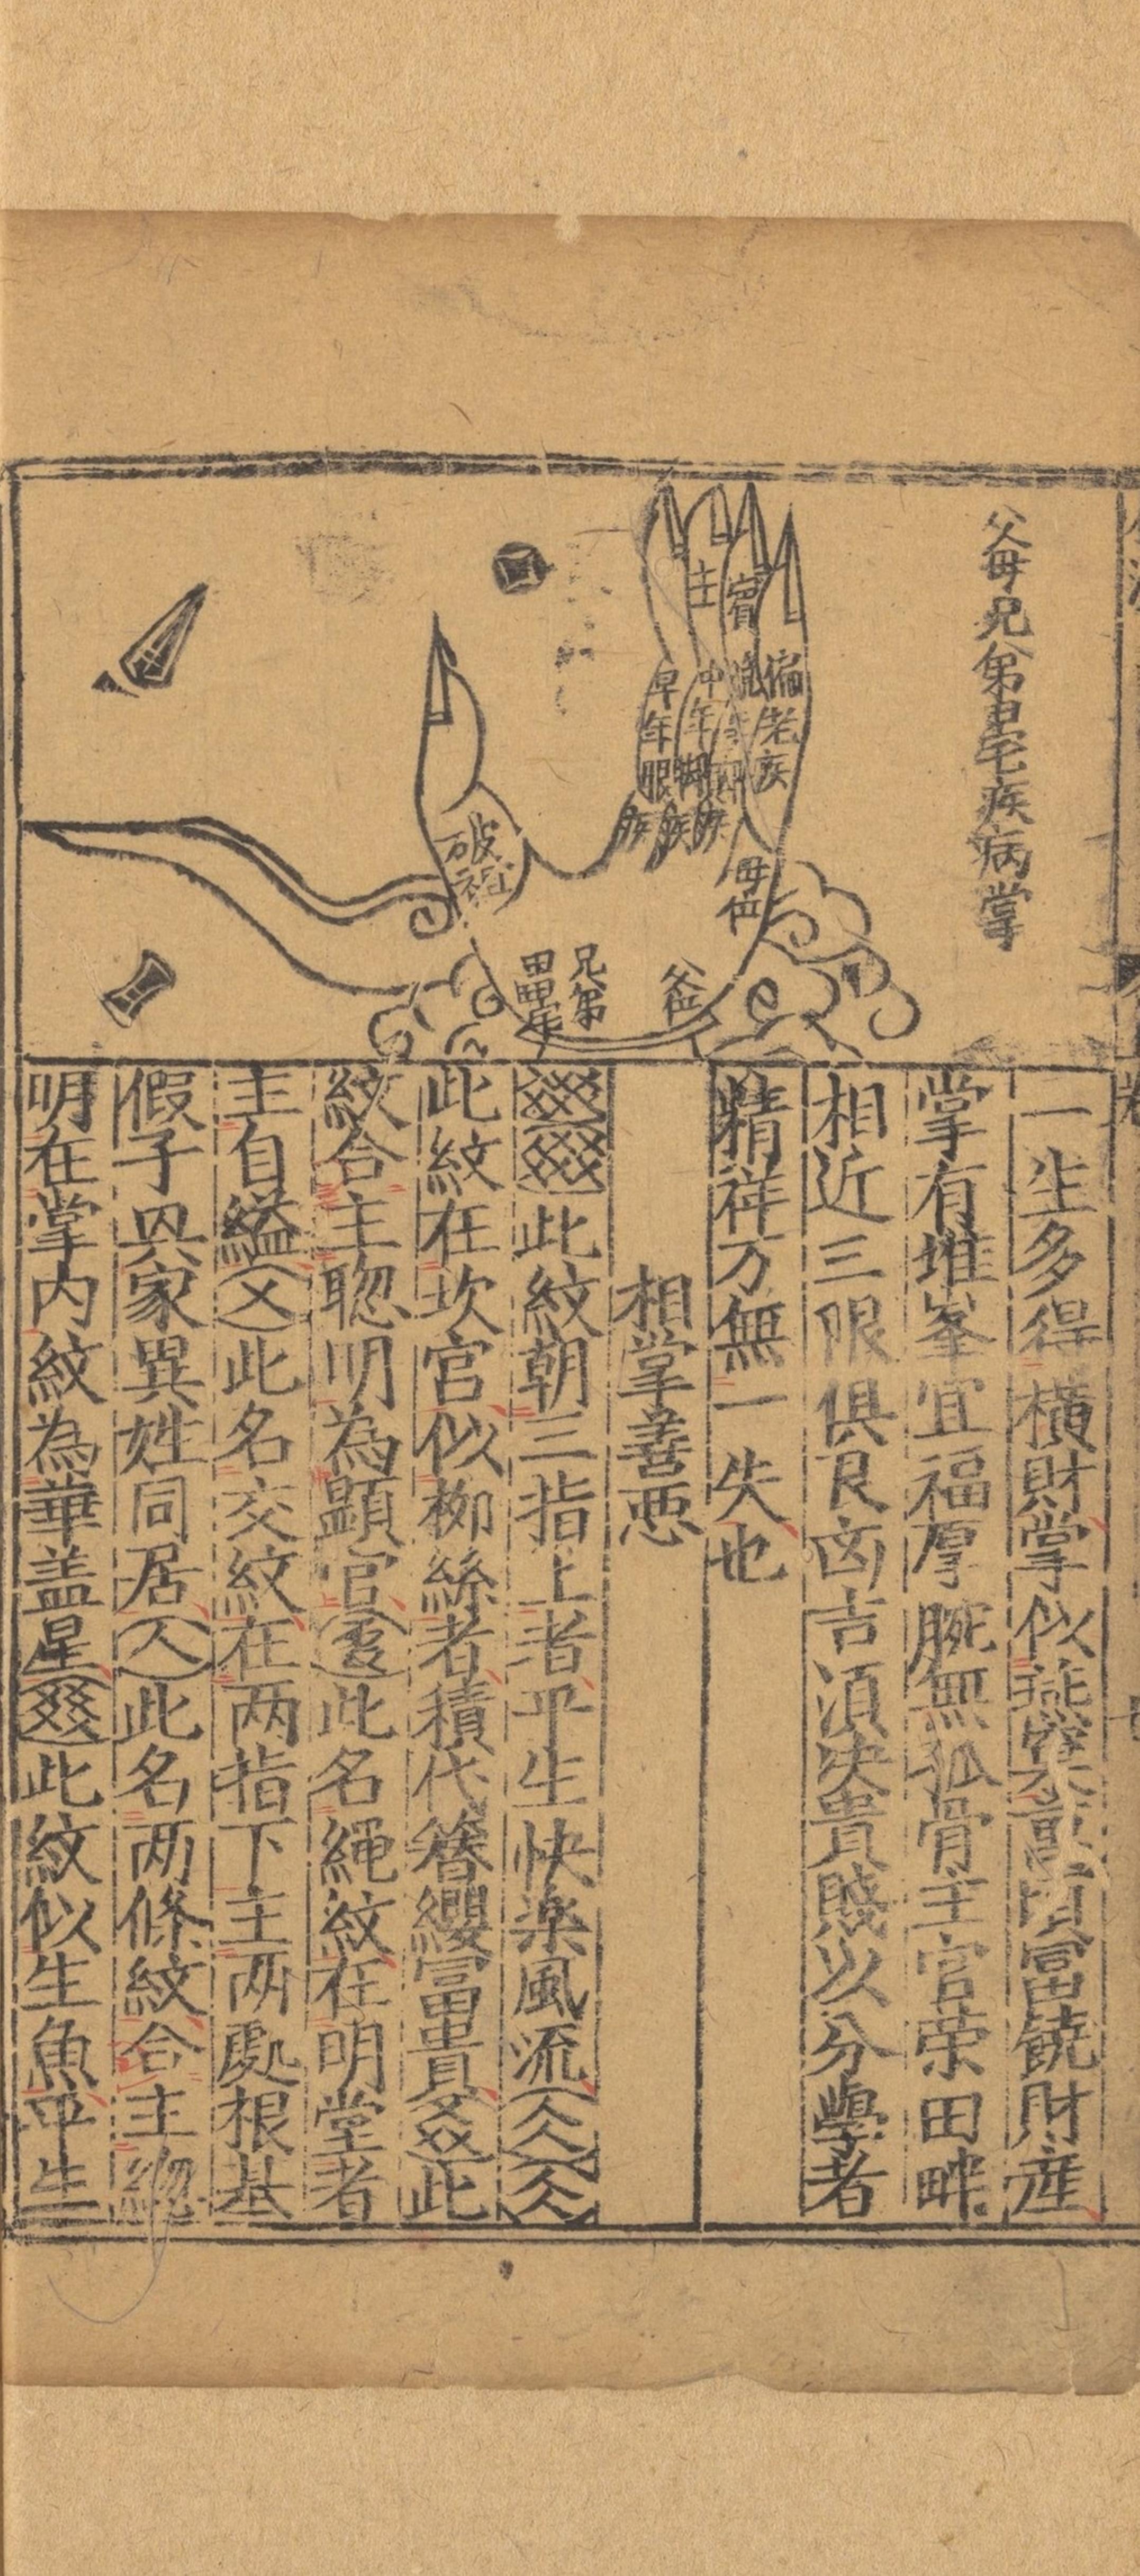 父母兄弟田宅疾病掌
主
賓
早年眼疾
中年脚疾
偏老疾
母位
破祖
田宅
兄弟
父位
一生多得橫財掌似燕窠頭頃富饒財產
掌有堆峯宜福厚腕無孤骨主官荣田畔
相近三限俱良凶吉須决貴賤以分學者
精祥万無一失也
相掌善恶
此紋朝三指上者平生快楽風流
此紋在坎宫似柳絲者積代簪纓冨貴此
紋合主聦明為顕官此名繩紋在明堂者
主自縊此名交紋在两指下主两處根基
假子㒷家異姓同居此名两條紋合主聦
明在掌内紋為華盖星此紋似生魚平生